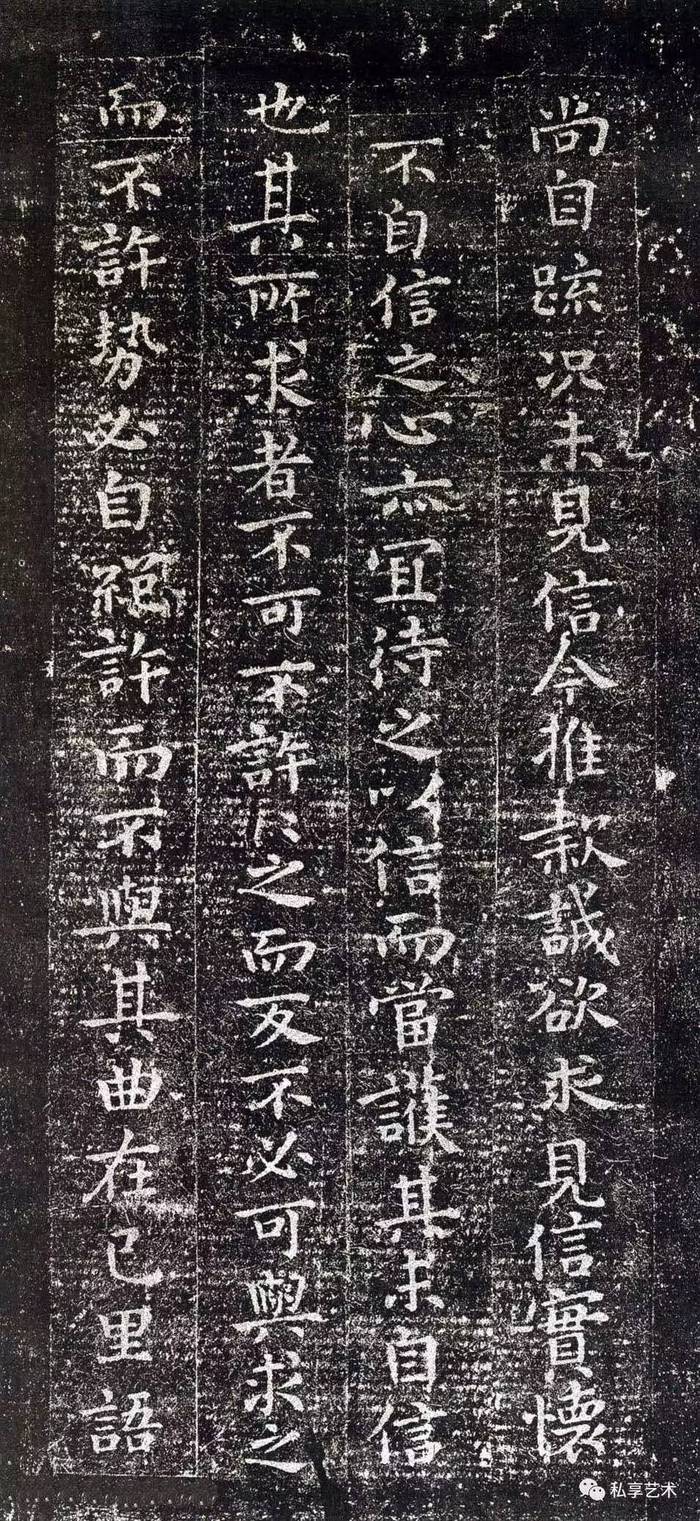 尚自疏况未見信今推款誠欲求見信實懷
不自信之心亦宜待之以信而當護其未自信
也其所求者不可不許許之而反不必可與求之
而不許勢必自絕許而不與其曲在己里語
私享艺术